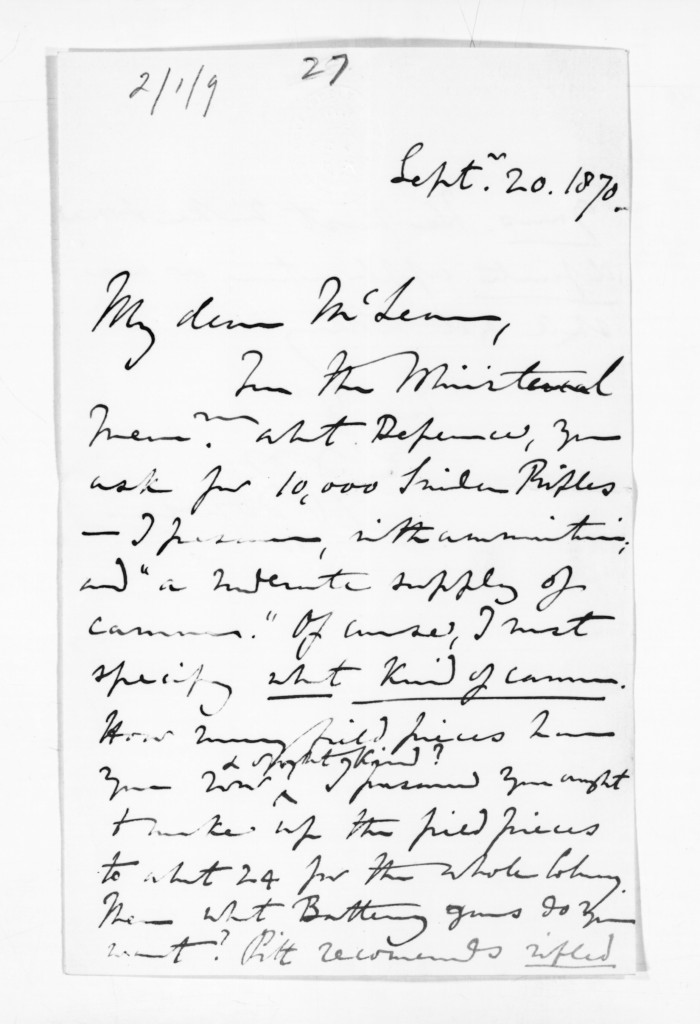 2/1/9
27
Septr. 20. 1870.
My dear McLean,
In the Ministerial
Memm. abt Defence, you
ask for 10,000 Snider Rifles
— I presume, with ammunition;
and "a moderate supply of
cannon." Of course, I must
specify what kind of cannon.
How many field pieces have
you now & of what kind? I presume you ought
to make up the field pieces
to abt 24 for the whole Colony.
Then what Battery guns do you
want? Pitt recomends rifled